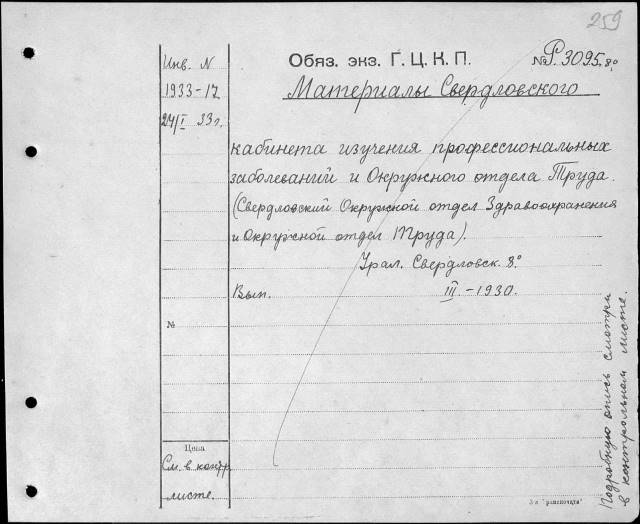 259
Инв. N
1933-17
24/I 33г.
Обяз. экз. Г. Ц. К. П.
№ Р. 3095. 8°
Материалы Свердловского
кабинета изучения профессиональных
заболеваний и Окружного отдела Труда.
(Свердловский Окружной отдел Здравоохранения
и Окружной отдел Труда).
Урал. Свердловск. 8°
Вып. III. - 1930.
№
Цена
См. в контр.
листе.
Подробную опись смотри
в контрольном листе.